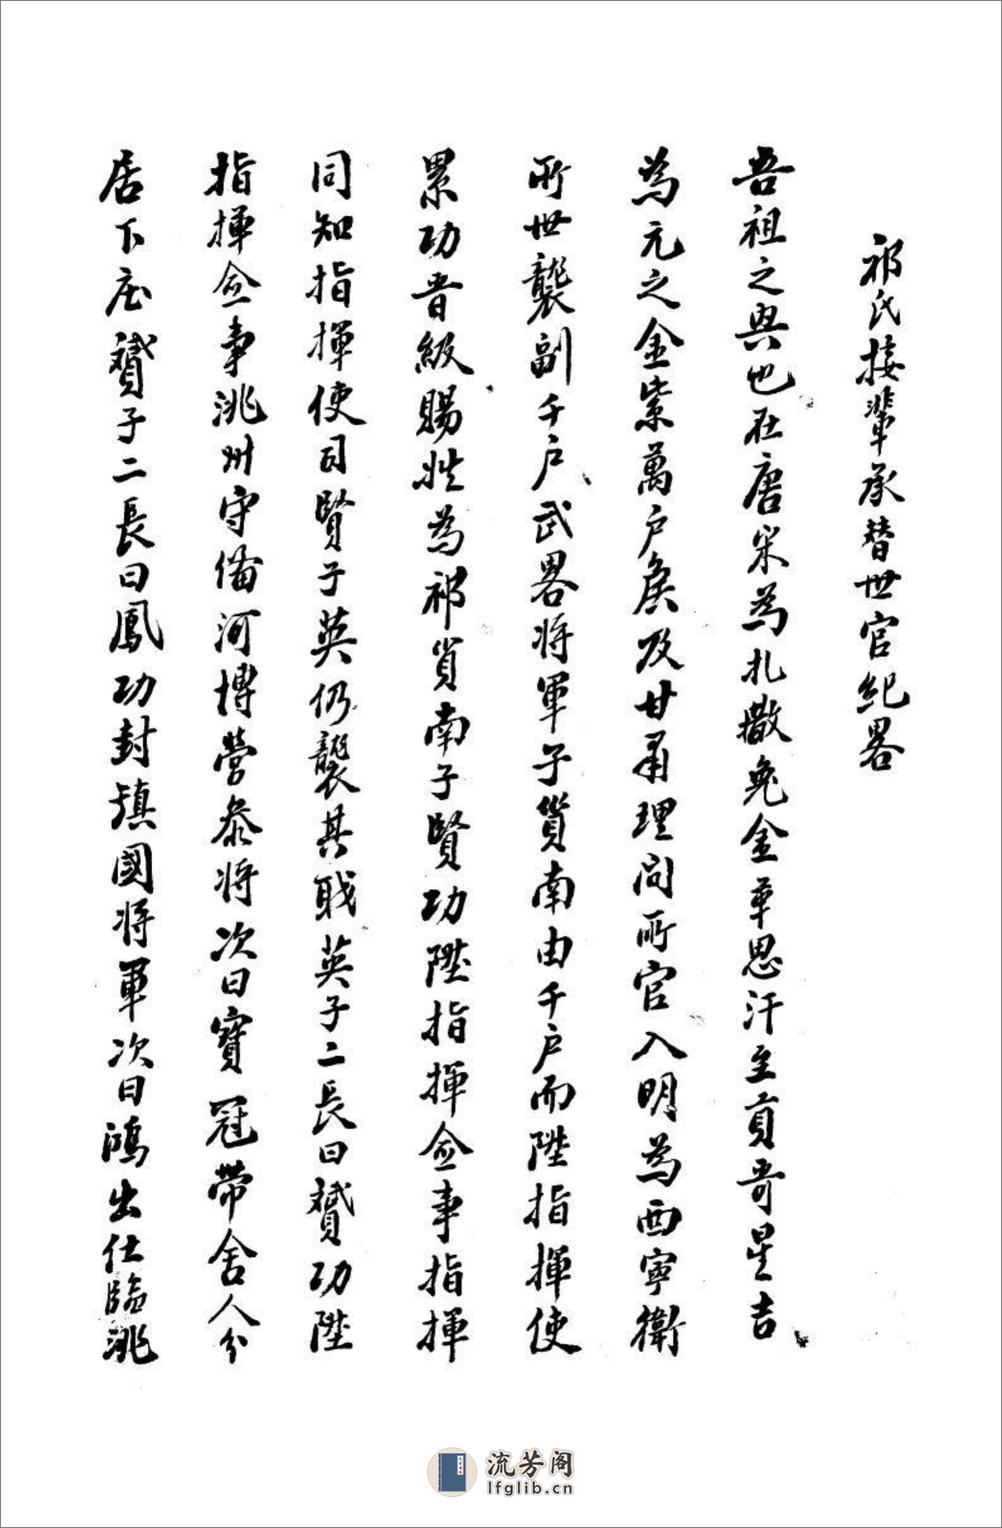 祁氏接輩承替世官紀畧
吾祖之興也在唐宋為扎撒兔金革恩汗至貢哥星吉
為元之金紫萬户矦及甘肅理问所官入明為西寧衛
所世襲副千户武畧将軍子貭南由千户而陞指揮使
累功晋級賜姓為祁貭南子賢功陞指揮僉事指揮
同知指揮使司賢子英仍襲其職英子二長曰贇功陞
指揮僉事洮州守俻河博營叅将次曰寶冠帶舍人分
居下庄贇子二長曰鳳功封鎮國将軍次曰鴻出仕臨洮
流芳阁
lfglib.cn